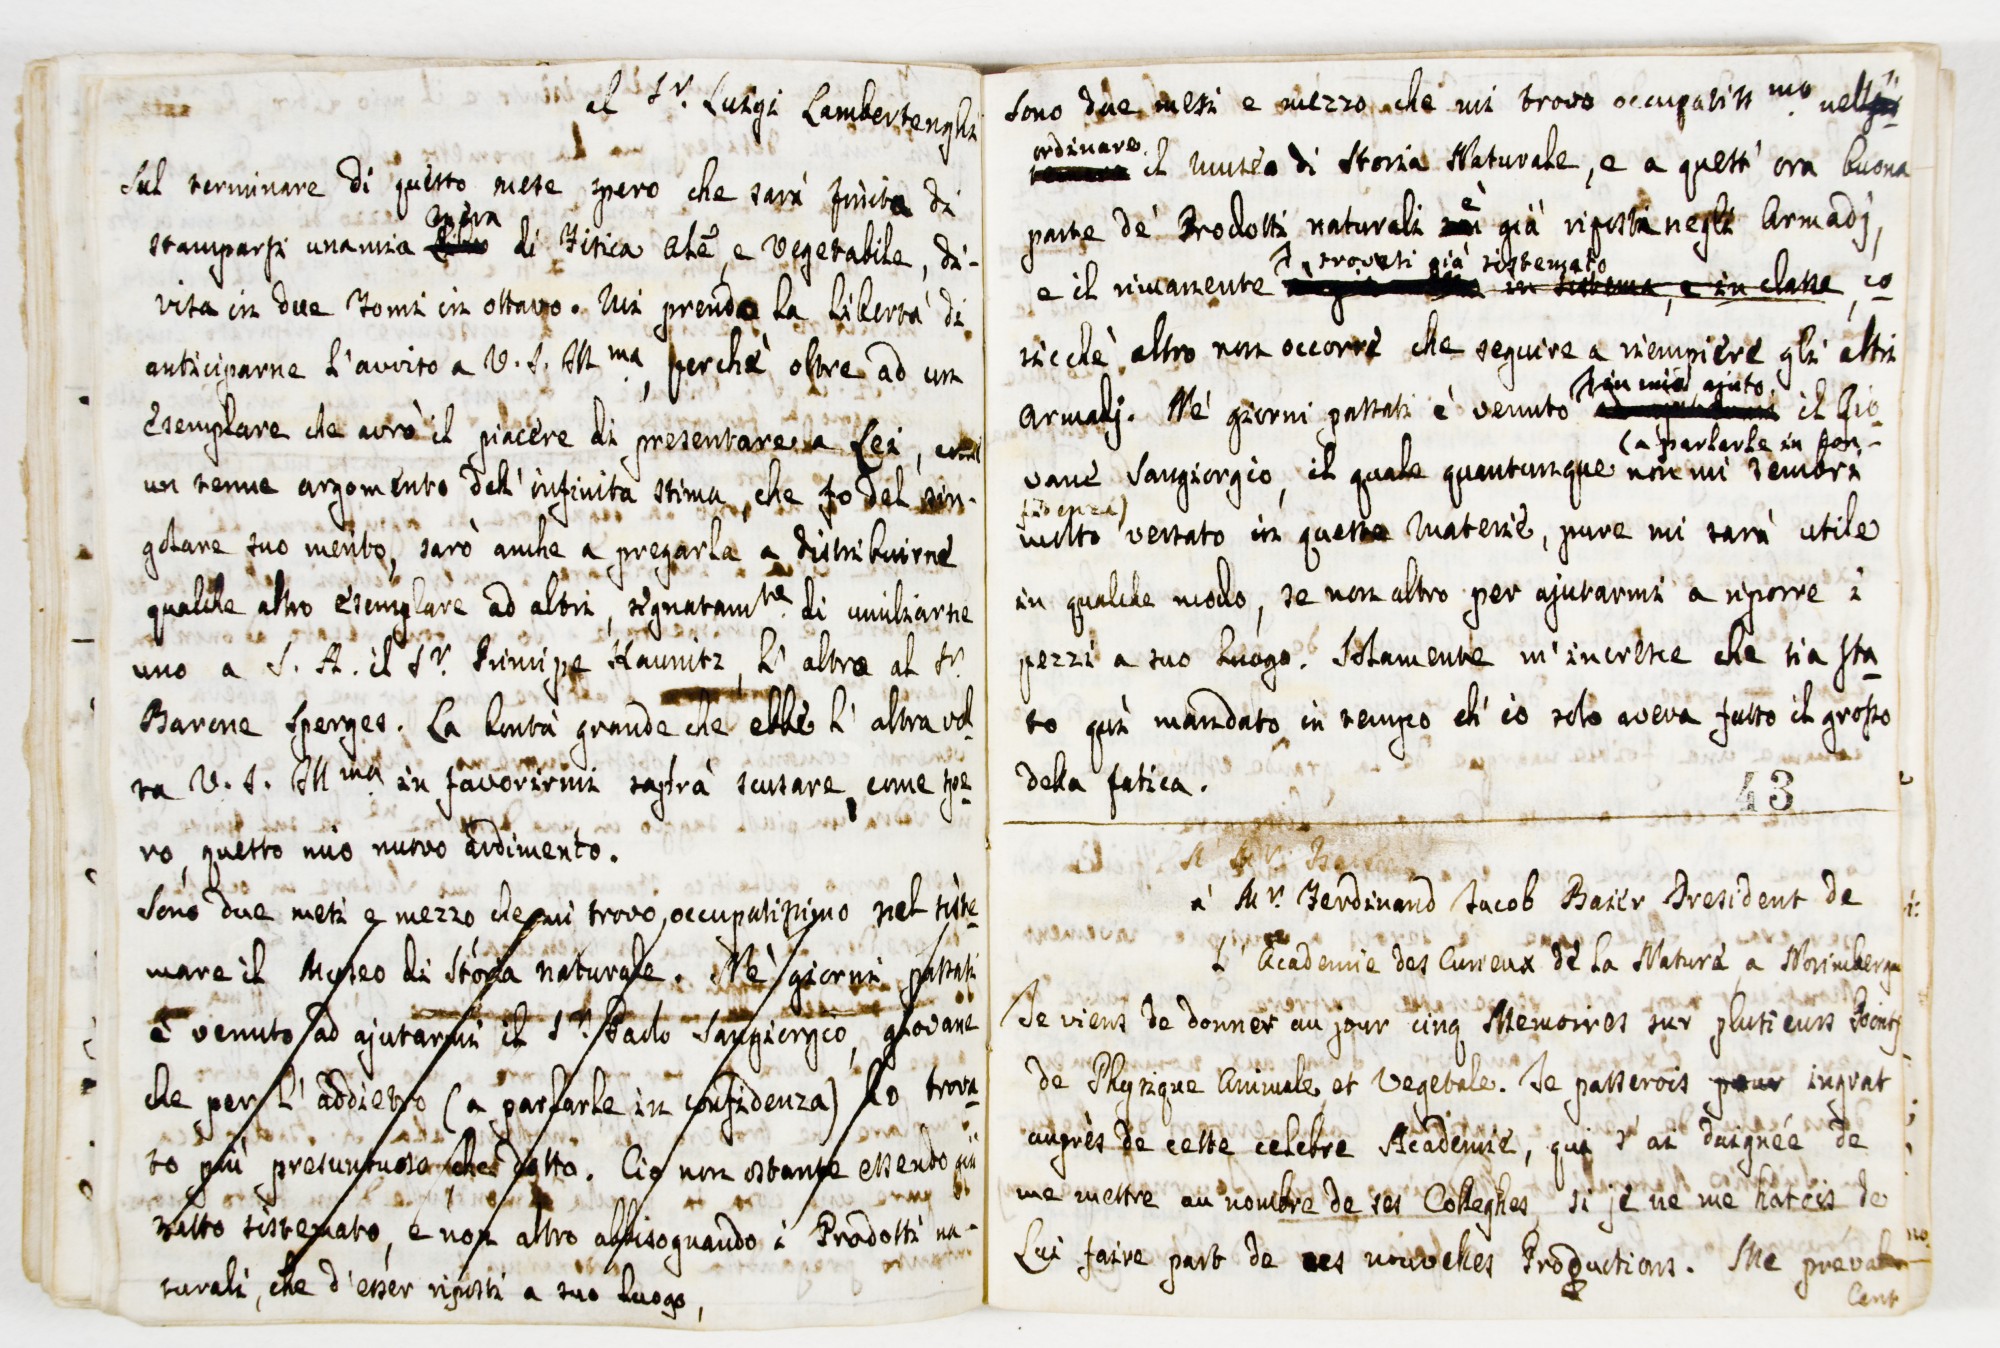 al Sr. Luigi Lambertenghi
Sul terminare di questo mese spero che sarà finita di
opera
stamparsi una mia di Fisica Ale, e Vegetabile, di-
visa in due Tomi in ottavo. Mi prendo la libertà di
anticiparne l'avviso a V. S. Illma, perchè oltre ad un
Esemplare che avrò il piacere di presentare a Lei,
un tenue argomento dell'infinita stima, che fo del sin-
golare suo merito, sarò anche a pregarla a distribuirne
qualche altro Esemplare ad altri, segnatamte di umiliarne
uno a S. A. il Sr. Principe Kaunitz, l'altro al Sr.
Barone Sperges. La bontà grande che ebbe l'altra vol
ta V. S. Illma in favorirmi saprà scusare, come spe
ro, questo mio nuovo ardimento.
Sono due mesi e mezzo che mi trovo occupatissimo nel siste
mare il Museo di Storia naturale. Ne' giorni passati
è venuto ad ajutarmi il Sr. Paolo Sangiorgio, giovane
che per l'addietro (a parlarle in confidenza) ho trova
to più presuntuoso che dotto. Cio non ostante essendo già
tutto sistemato, e non altro abbisognando i Prodotti na-
turali, che d'esser riposti a suo luogo,
Sono due mesi e mezzo che mi trovo occupatissmo. nell
ordinare
il Museo di Storia Naturale, e a quest'ora buona
è
parte de' Prodotti naturali già riposta negli Armadj,
trovasi già sistemato
e il rimanente in sistema, e in classe, co
sicchè altro non occorre che seguire a riempiere gli altri
in mio ajuto
Armadj. Ne' giorni passati è venuto il Gio
(a parlarle in con-
vane Sangiorgio, il quale quantunque non mi sembri
fidenza)
molto versato in queste Materie, pure mi sarà utile
in qualche modo, se non altro per ajutarmi a riporre i
pezzi a suo luogo. Solamente m'incresce che sia sta
to quì mandato in tempo ch'io solo aveva fatto il grosso
della fatica.
43
A Mr. Baier
a' Mr. Ferdinand Jacob Baier President de
L'Academie des Curieux de la Nature a Norimbergue
Je viens de donner au jour cinq Memoires sur plusieurs Points
de Physique Animale et Vegetale. Je passerois pour ingrat
auprès de cette celebre Academie, qui s'ai daignée de
me mettre au nombre de ses Colleghes si je ne me hatois de
Lui faire part de ces nouvelles Productions. Me preval